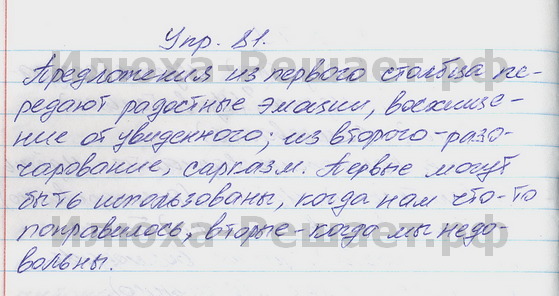 Упр. 81.
Предложения из первого столбца пе-
редают радостные эмоции, восхище-
ние от увиденного; из второго - разо-
чарование, сарказм. Первые могут
быть использованы, когда нам что-то
понравилось, вторые - когда мы недо-
вольны.
Илюха-Решает.рф
Илюха-Решает.рф